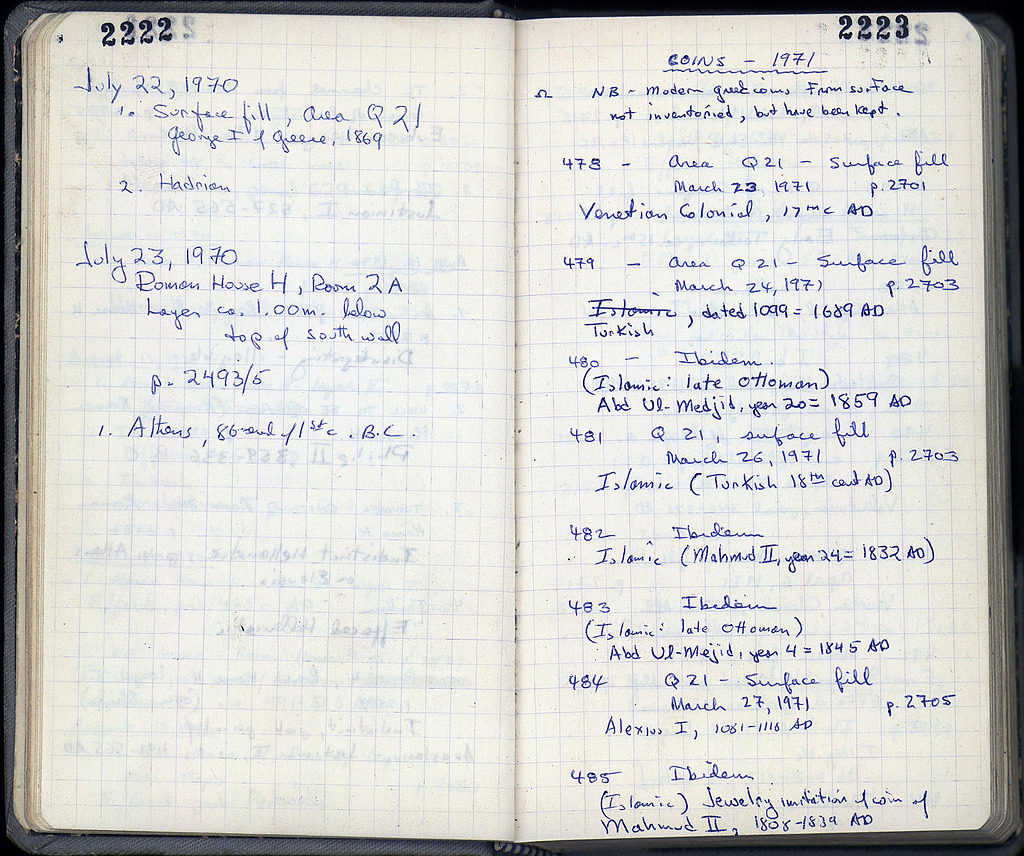 2222
July 22, 1970
1. Surface fill, area Q 21
George I of Greece, 1869
2. Hadrian
July 23, 1970
Roman House H, Room 2A
Layer ca. 1.00m. below
top of south wall
p. 2493/5
1. Athens, 86-end of 1st c. B.C.
2223
COINS - 1971
NB - Modern greek coins from surface
not inventoried, but have been kept.
478 - Area Q 21 - Surface fill
March 23, 1971 p. 2701
Venetian Colonial, 17th c AD
479 - Area Q 21 - Surface fill
March 24, 1971 p. 2703
Islamic, dated 1099 = 1689 AD
Turkish
480 - Ibidem.
(Islamic: late Ottoman)
Abd Ul-Medjid, year 20 = 1859 AD
481 Q 21, surface fill
March 26, 1971 p. 2703
Islamic (Turkish 18th cent AD)
482 Ibidem
Islamic (Mahmud II, year 24 = 1832 AD)
483 Ibidem
(Islamic: late Ottoman)
Abd Ul-Mejid, year 4 = 1845 AD
484 Q 21 - Surface fill
March 27, 1971 p. 2705
Alexius I, 1081-1118 AD
485 Ibidem
(Islamic) Jewelry imitation of coin of
Mahmud II, 1808-1839 AD